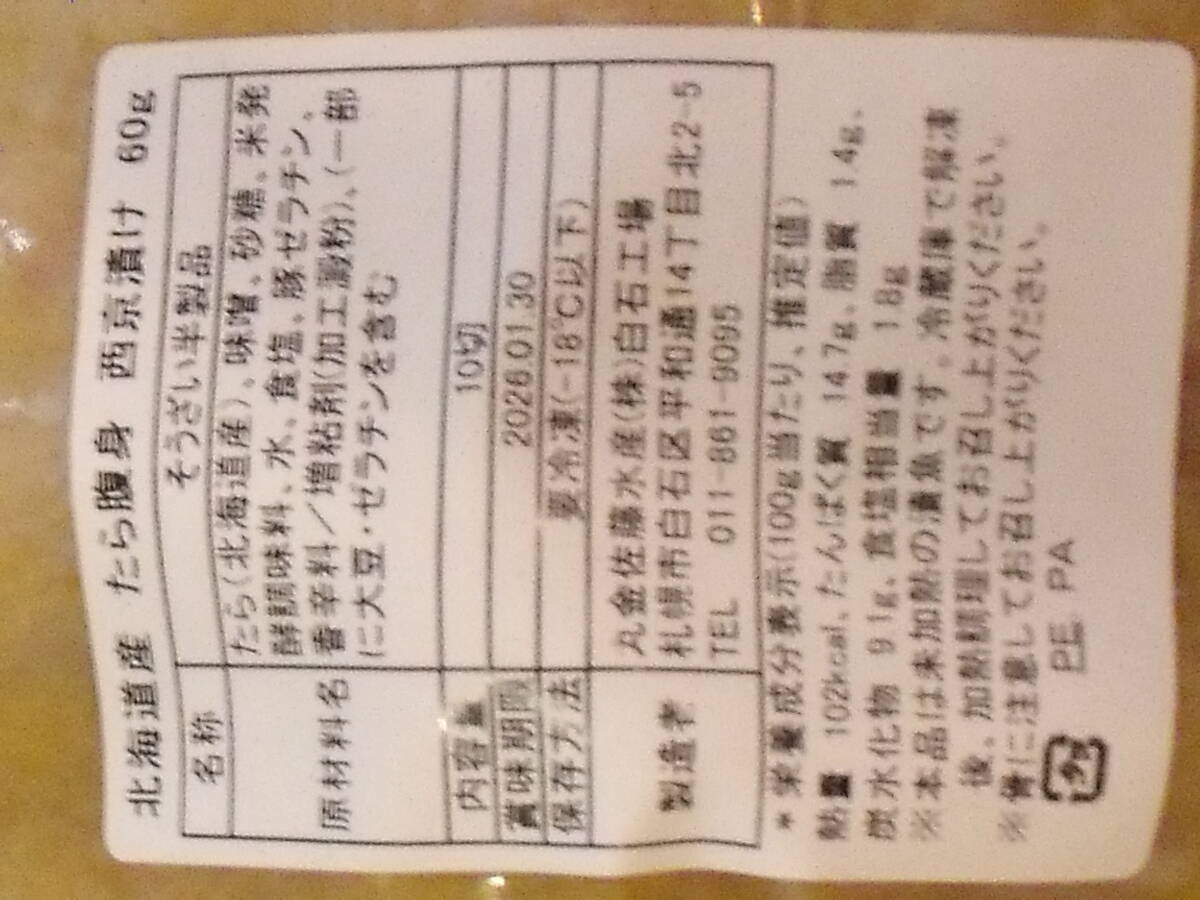 北海道産 たら腹身 西京漬け 60g
名称 そうざい半製品
原材料名 たら(北海道産)、味噌、砂糖、米発
酵調味料、水、食塩、豚ゼラチン、
香辛料/増粘剤(加工澱粉)、(一部
に大豆・ゼラチンを含む
内容量 10切
賞味期限 2026.01.30
保存方法 要冷凍(-18℃以下)
製造者 丸金佐藤水産(株)白石工場
札幌市白石区平和通14丁目北2-5
TEL 011-861-9095
*栄養成分表示(100g当たり、推定値)
熱量 102kcal、たんぱく質 14.7g、脂質 1.4g、
炭水化物 9.1g、食塩相当量 1.8g
※本品は未加熱の漬魚です。冷蔵庫で解凍
後、加熱調理してお召し上がりください。
※骨に注意してお召し上がりください。
プラ PE, PA